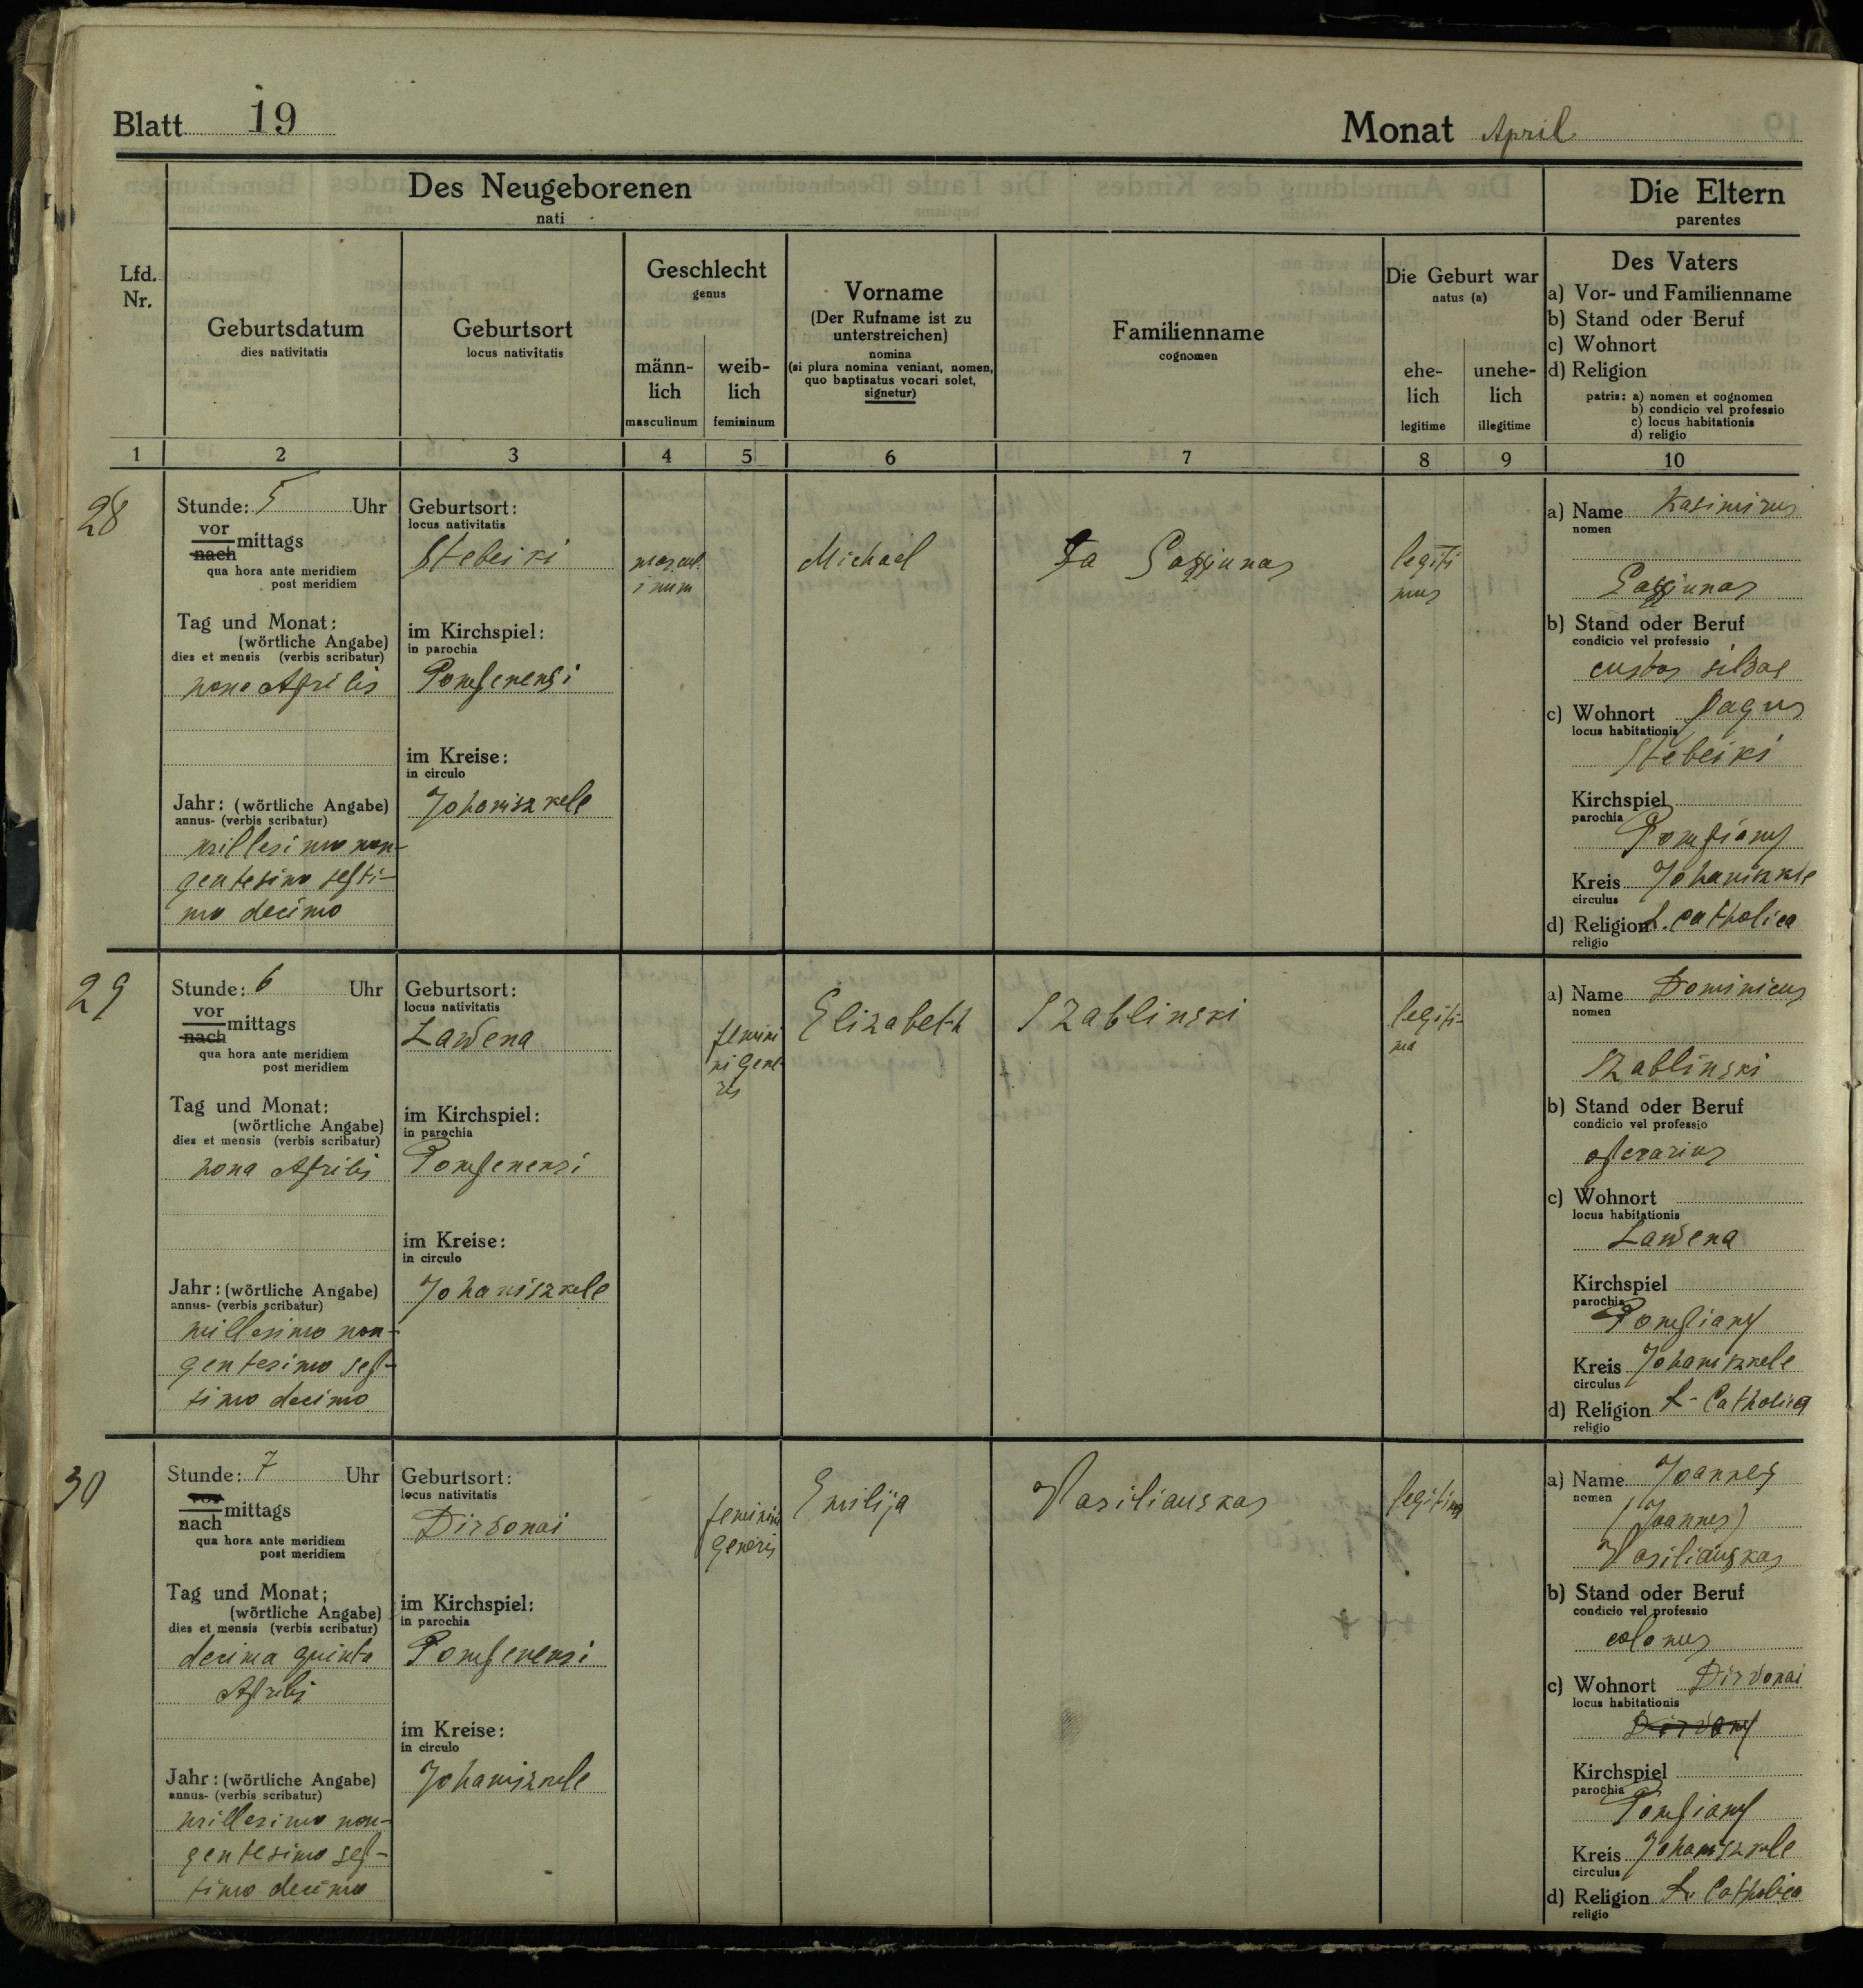 Blatt 19
Monat April
Des Neugeborenen
nati
Die Eltern
parentes
Lfd.
Nr.
Geburtsdatum
dies nativitatis
Geburtsort
locus nativitatis
Geschlecht
genus
männ-
lich
masculinum
weib-
lich
femininum
Vorname
(Der Rufname ist zu
unterstreichen)
nomina
(si plura nomina veniant, nomen,
quo baptisatus vocari solet,
signetur)
Familienname
cognomen
Die Geburt war
natus (a)
ehe-
lich
legitime
unehe-
lich
illegitime
Des Vaters
a) Vor- und Familienname
b) Stand oder Beruf
c) Wohnort
d) Religion
patris: a) nomen et cognomen
b) condicio vel professio
c) locus habitationis
d) religio
1 2 3 4 5 6 7 8 9 10
28
Stunde: 5 Uhr
vor
nach mittags
qua hora ante meridiem
post meridiem
Tag und Monat:
(wörtliche Angabe)
dies et mensis (verbis scribatur)
nona Aprilis
Jahr: (wörtliche Angabe)
annus- (verbis scribatur)
millesimo non-
gentesimo septi-
mo decimo
Geburtsort:
locus nativitatis
Stebeiki
im Kirchspiel:
in parochia
Pompenensi
im Kreise:
in circulo
Johaniszkele
mascul.
inum
Michael
legiti
mus
a) Name Kasimirus
nomen
b) Stand oder Beruf
condicio vel professio
custos silvae
c) Wohnort pagus
locus habitationis
Stebeiki
Kirchspiel
parochia
Pompiany
Kreis Johaniszkele
circulus
d) Religion r. catholica
religio
29
Stunde: 6 Uhr
vor
nach mittags
qua hora ante meridiem
post meridiem
Tag und Monat:
(wörtliche Angabe)
dies et mensis (verbis scribatur)
nona Aprilis
Jahr: (wörtliche Angabe)
annus- (verbis scribatur)
millesimo non-
gentesimo sep-
timo decimo
Geburtsort:
locus nativitatis
Lawena
im Kirchspiel:
in parochia
Pompenensi
im Kreise:
in circulo
Johaniszkele
femini
ni gene-
ris
Elizabeth
Szablinski
legiti-
ma
a) Name Dominicus
nomen
Szablinski
b) Stand oder Beruf
condicio vel professio
operarius
c) Wohnort
locus habitationis
Lawena
Kirchspiel
parochia
Pompiany
Kreis Johaniszkele
circulus
d) Religion r. Catholica
religio
30
Stunde: 7 Uhr
vor
nach mittags
qua hora ante meridiem
post meridiem
Tag und Monat;
(wörtliche Angabe)
dies et mensis (verbis scribatur)
decima quinta
Aprilis
Jahr: (wörtliche Angabe)
annus- (verbis scribatur)
millesimo non-
gentesimo sep-
timo decimo
Geburtsort:
locus nativitatis
Dirvonai
im Kirchspiel:
in parochia
Pompenensi
im Kreise:
in circulo
Johaniszkele
feminini
generis
Emilija
Vasiliauskas
legitima
a) Name Joannes
nomen
(Joannes)
Vasiliauskas
b) Stand oder Beruf
condicio vel professio
colonus
c) Wohnort Dirvonai
locus habitationis
Dirvany
Kirchspiel
parochia
Pompiany
Kreis Johaniszkele
circulus
d) Religion r. Catholica
religio